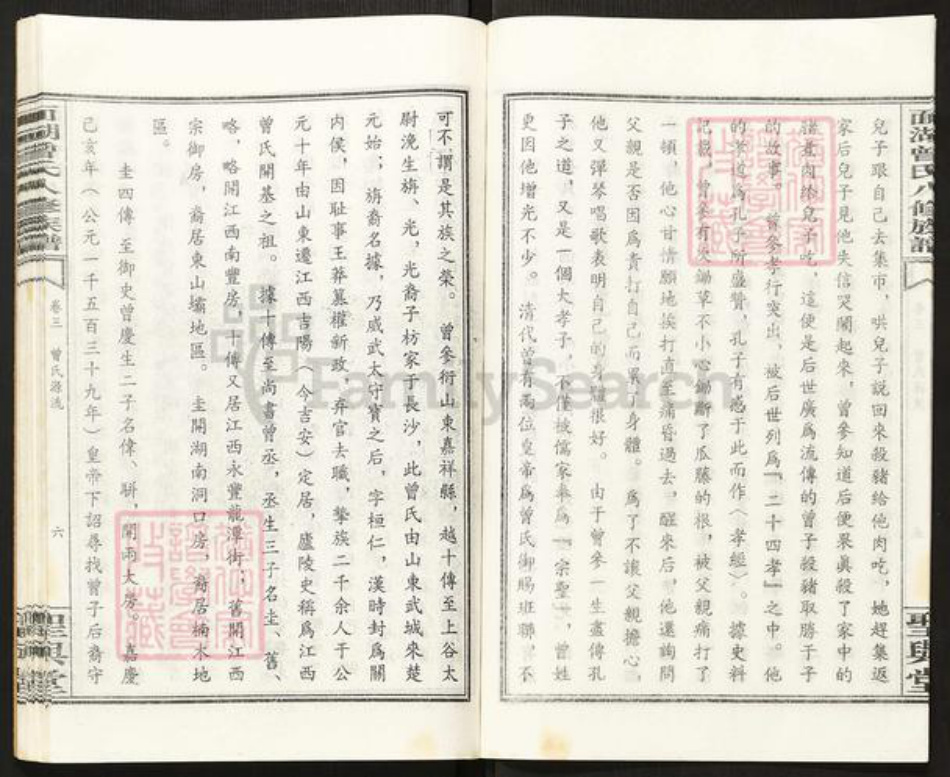 面湖曾氏八修族譜
聖與堂
兒子跟自己去集市，哄兒子說回來殺豬給他肉吃，她趕集返
家后兒子見他失信哭鬧起來，曾參知道后便果眞殺了家中的
豬煮肉給兒子吃，這便是后世廣爲流傳的曾子殺豬取勝于子
的故事。曾參孝行突出，被后世列爲『二十四孝』之中。他
的孝道爲孔子所盛贊，孔子有感于此而作〈孝經〉。據史料
記載，曾參有次鋤草不小心鋤斷了瓜藤的根，被父親痛打了
一頓，他心甘情願地挨打直至痛昏過去，醒來后，他還詢問
父親是否因爲責打自己而累了身體。爲了不讓父親擔心，
他又彈琴唱歌表明自己的身體很好。由于曾參一生盡傳孔
子之道，又是一個大孝子，不僅被儒家奉爲『宗聖』，曾姓
更因他增光不少。清代曾有兩位皇帝爲曾氏御賜班聯，不
可不謂是其族之榮。曾參衍山東嘉祥縣，越十傳至上谷太
尉浼生旃、光，光裔子枋家于長沙，此曾氏由山東武城來楚
元始；旃裔名據，乃威武太守寶之后，字桓仁，漢時封爲關
内侯，因耻事王莽篡權新政，弃官去職，挈族二千余人于公
元十年由山東遷江西吉陽（今吉安）定居，廬陵史稱爲江西
曾氏開基之祖。據十傳至尚書曾丞，丞生三子名圭、舊、
略，略開江西南豐房，十傳又居江西永豐龍潭街；舊開江西
宗御房，裔居東山壩地區。圭開湖南洞口房，裔居楠木地
區。
圭四傳至御史曾慶生二子名偉、駢，開兩大房。嘉慶
己亥年（公元一千五百三十九年）皇帝下詔尋找曾子后裔守
面湖曾氏八修族譜
卷三　曾氏源流
六
聖與堂
FamilySearch